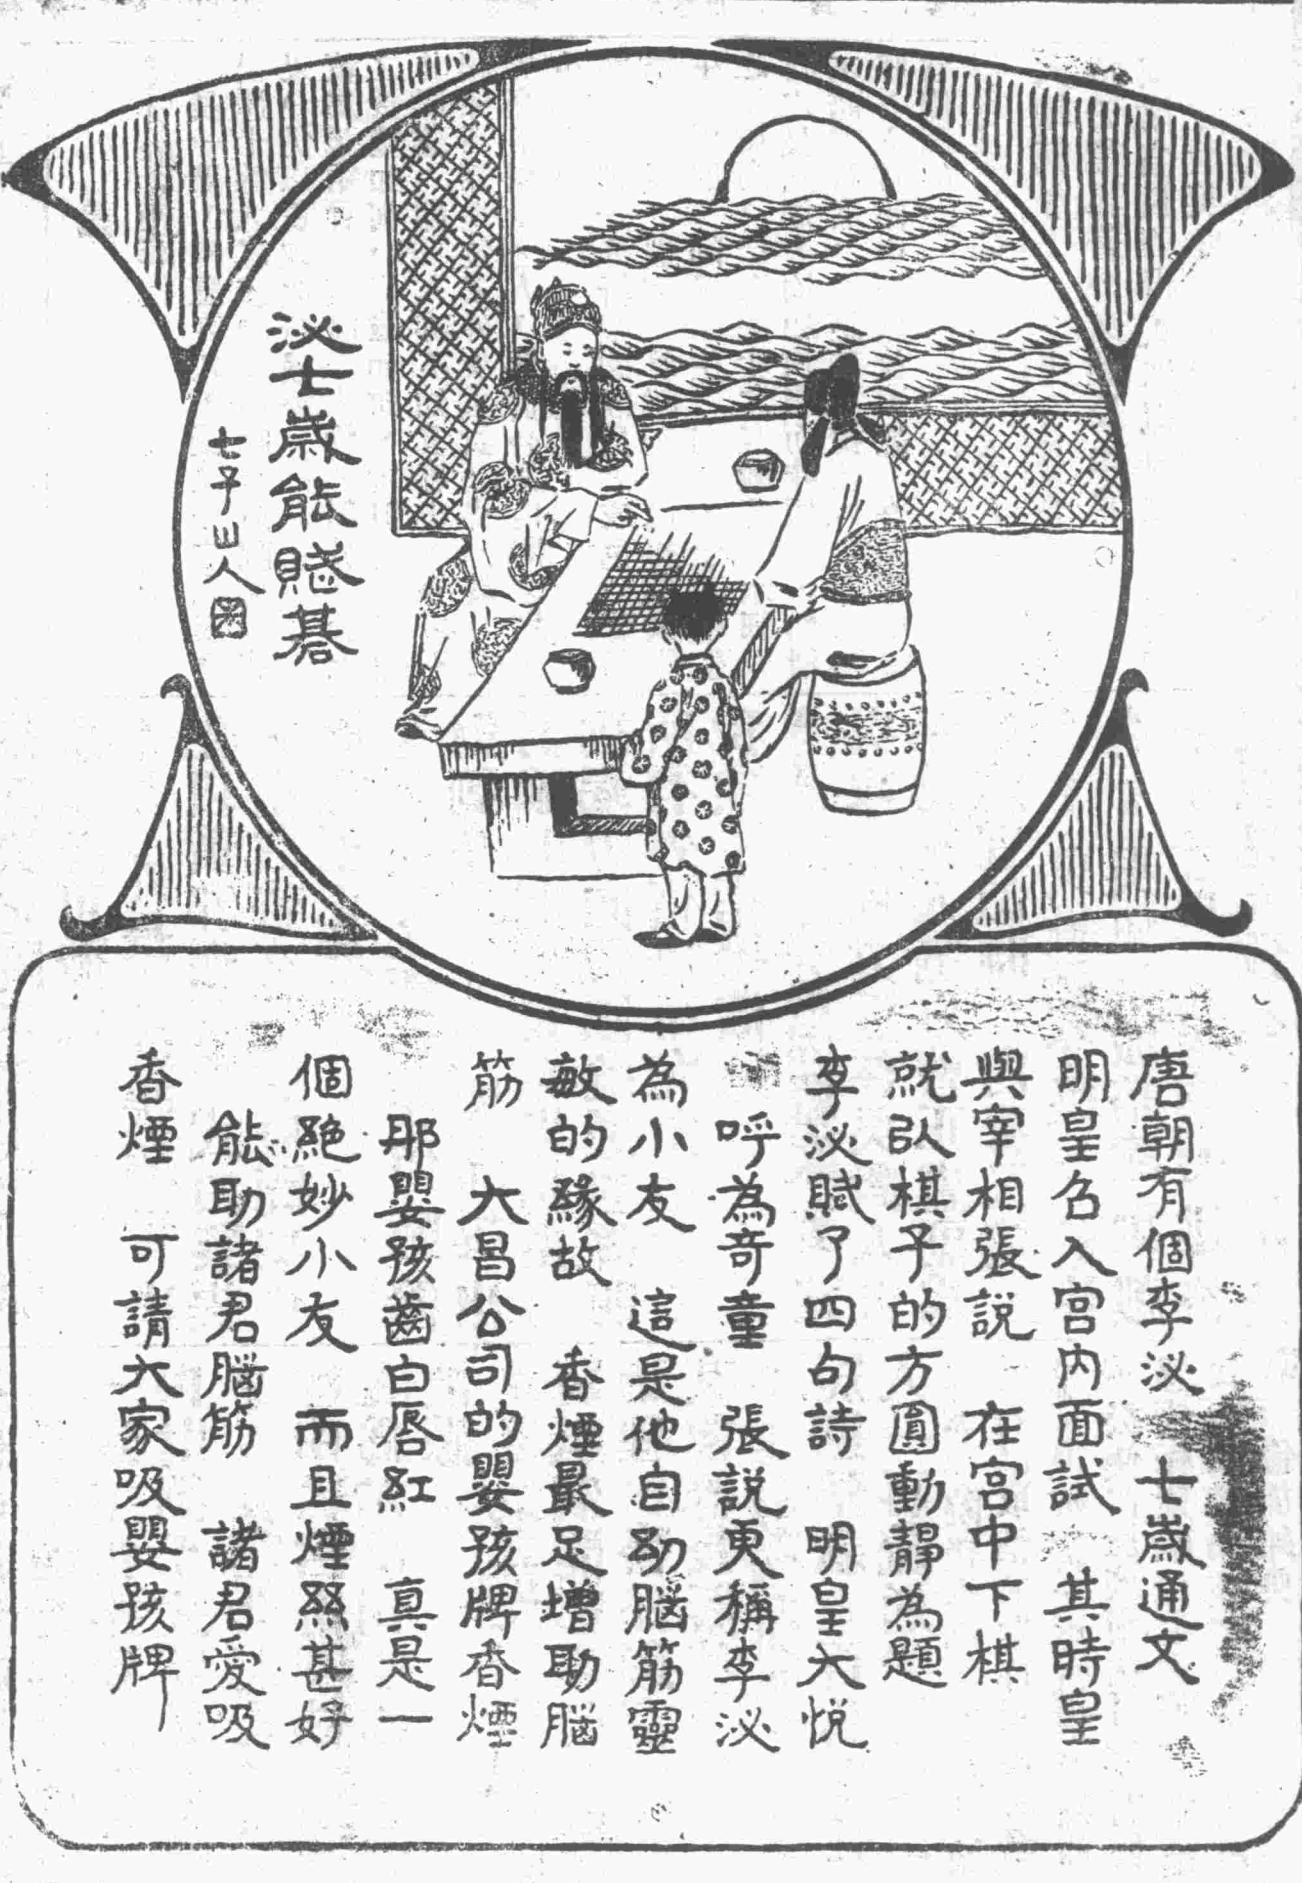 泌七歲能賦碁
七子山人図
唐朝有個李泌　七歲通文
明皇召入宮內面試　其時皇
與宰相張說　在宮中下棋
就以棋子的方圓動靜為題
李泌賦了四句詩　明皇大悅
呼為奇童　張說更稱李泌
為小友　這是他自幼腦筋靈
敏的緣故　香煙最足增助腦
筋　大昌公司的嬰孩牌香煙
那嬰孩齒白唇紅　真是一
個絕妙小友　而且煙絲甚好
能助諸君腦筋　諸君愛吸
香煙　可請大家吸嬰孩牌